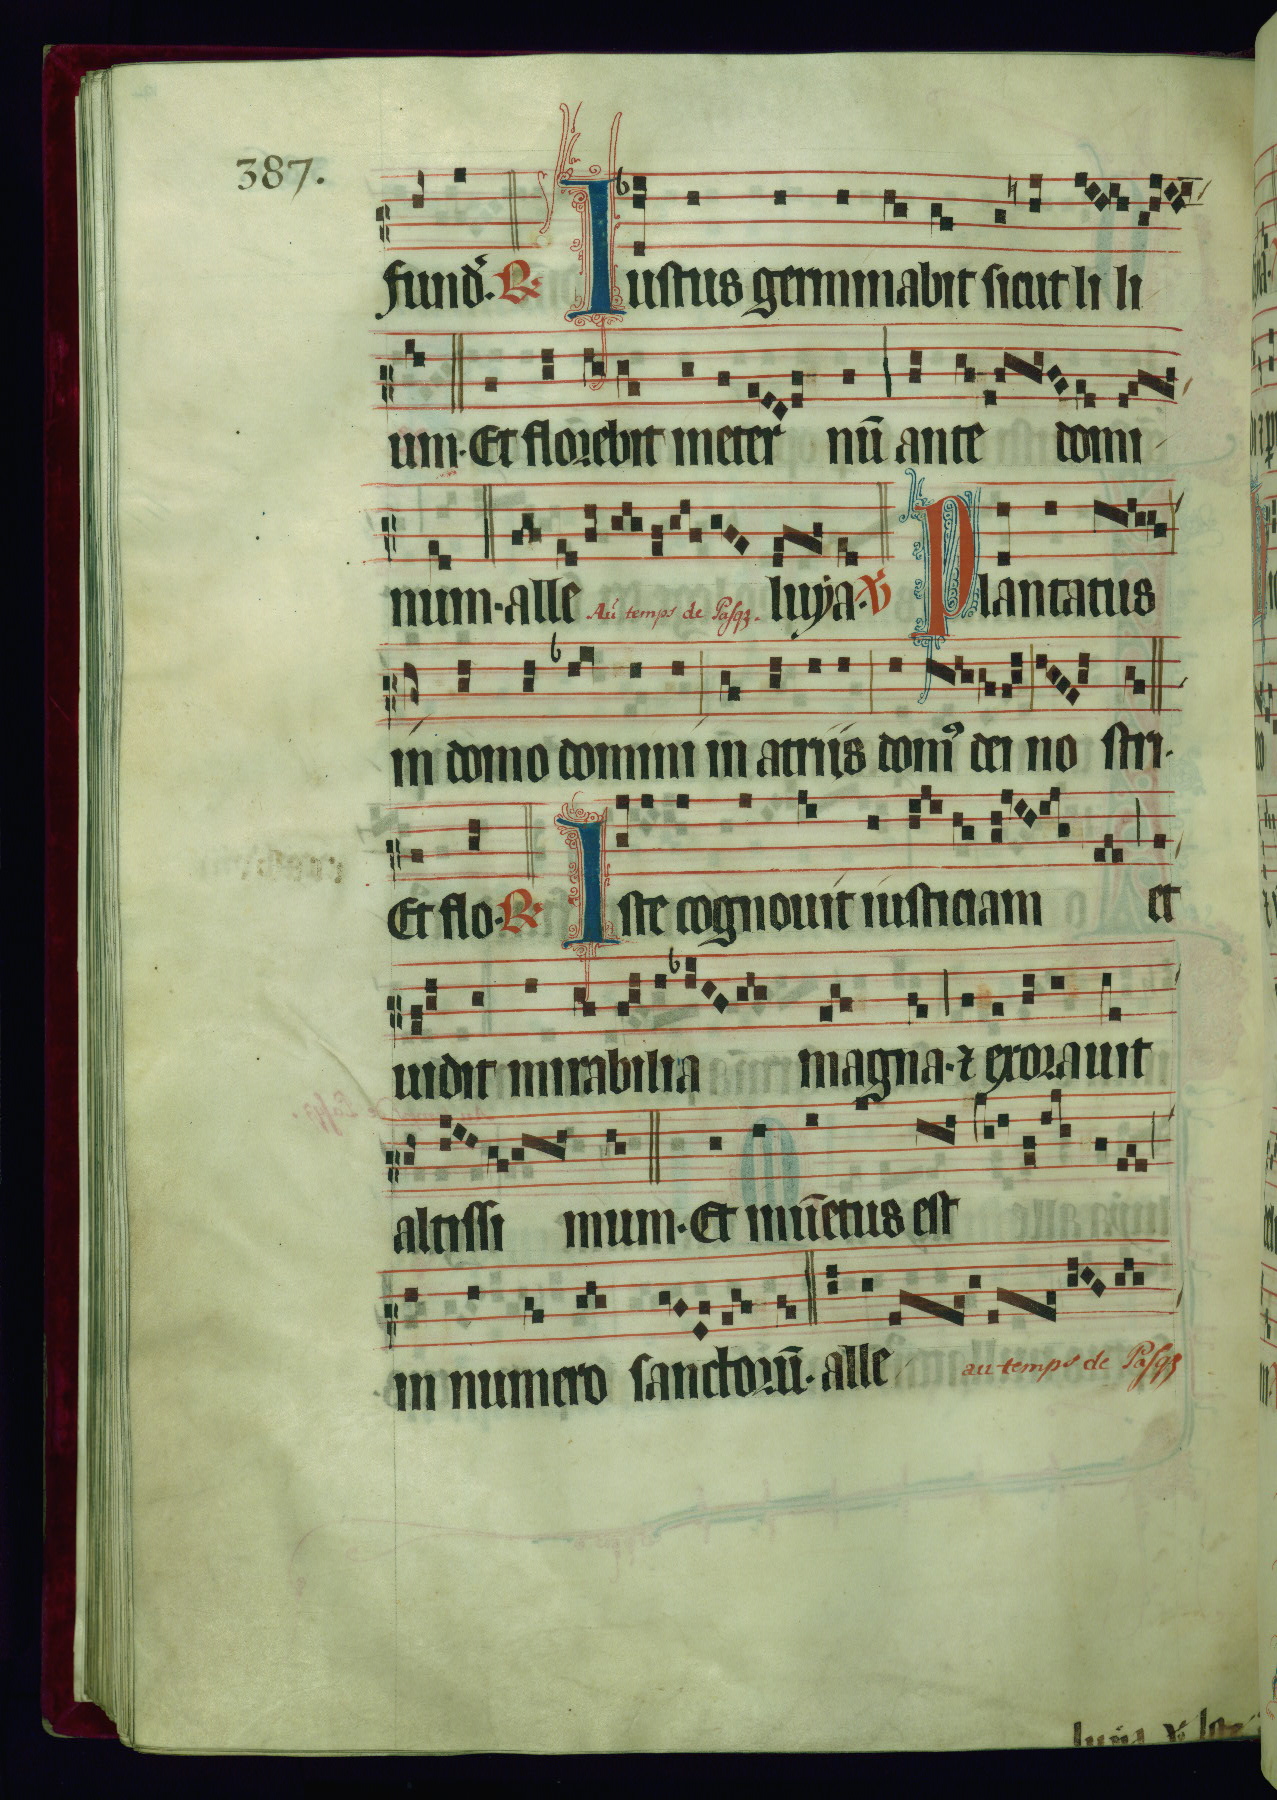 387.
fund᷎. R Iustus germinabit sicut li li
um. Et florebit ineter nū ante domi
num. alle Au temps de Pasqz. luya. V Plantatus
in domo domini in atriis domꝰ dei no stri.
Et flo. R Iste cognouit iusticiam et
uidit mirabilia magna. ⁊ exorauit
altissi mum. Et inuētus est
in numero sanctorū. alle au temps de Pasqz
luya